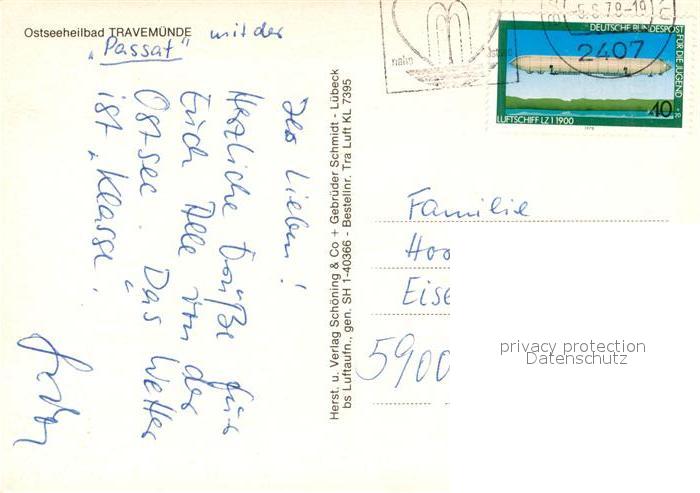 Ostseeheilbad TRAVEMÜNDE mit der
„Passat"
Ihr Lieben!
Herzliche Grüße für
Euch Alle von der
Ostsee. Das Wetter
ist „Klasse.
Herst. u. Verlag Schöning & Co + Gebrüder Schmidt - Lübeck
bs Luftaufn., gen. SH 1-40366 - Bestellnr. Tra Luft KL 7395
5.6.78-19
2407
DEUTSCHE BUNDESPOST
FÜR DIE JUGEND
40
+20
LUFTSCHIFF LZ 1 1900
1978
Familie
Hoo
Eise
5900
privacy protection
Datenschutz